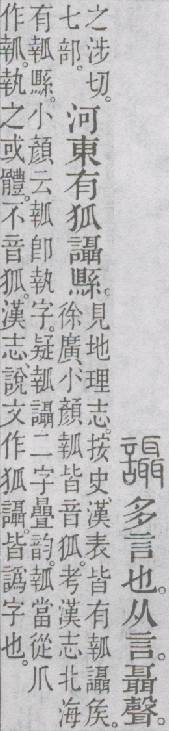 讘多言也。从言。聶聲。
之涉切。
七部。
河東有狐讘縣。
見地理志。按史漢表皆有瓡讘矦。
徐廣、小顏瓡皆音狐。考漢志北海
有瓡縣。小顏云瓡卽執字。疑瓡讘二字疊韵。瓡當從爪
作瓡。執之或體。不音狐。漢志說文作狐讘。皆譌字也。